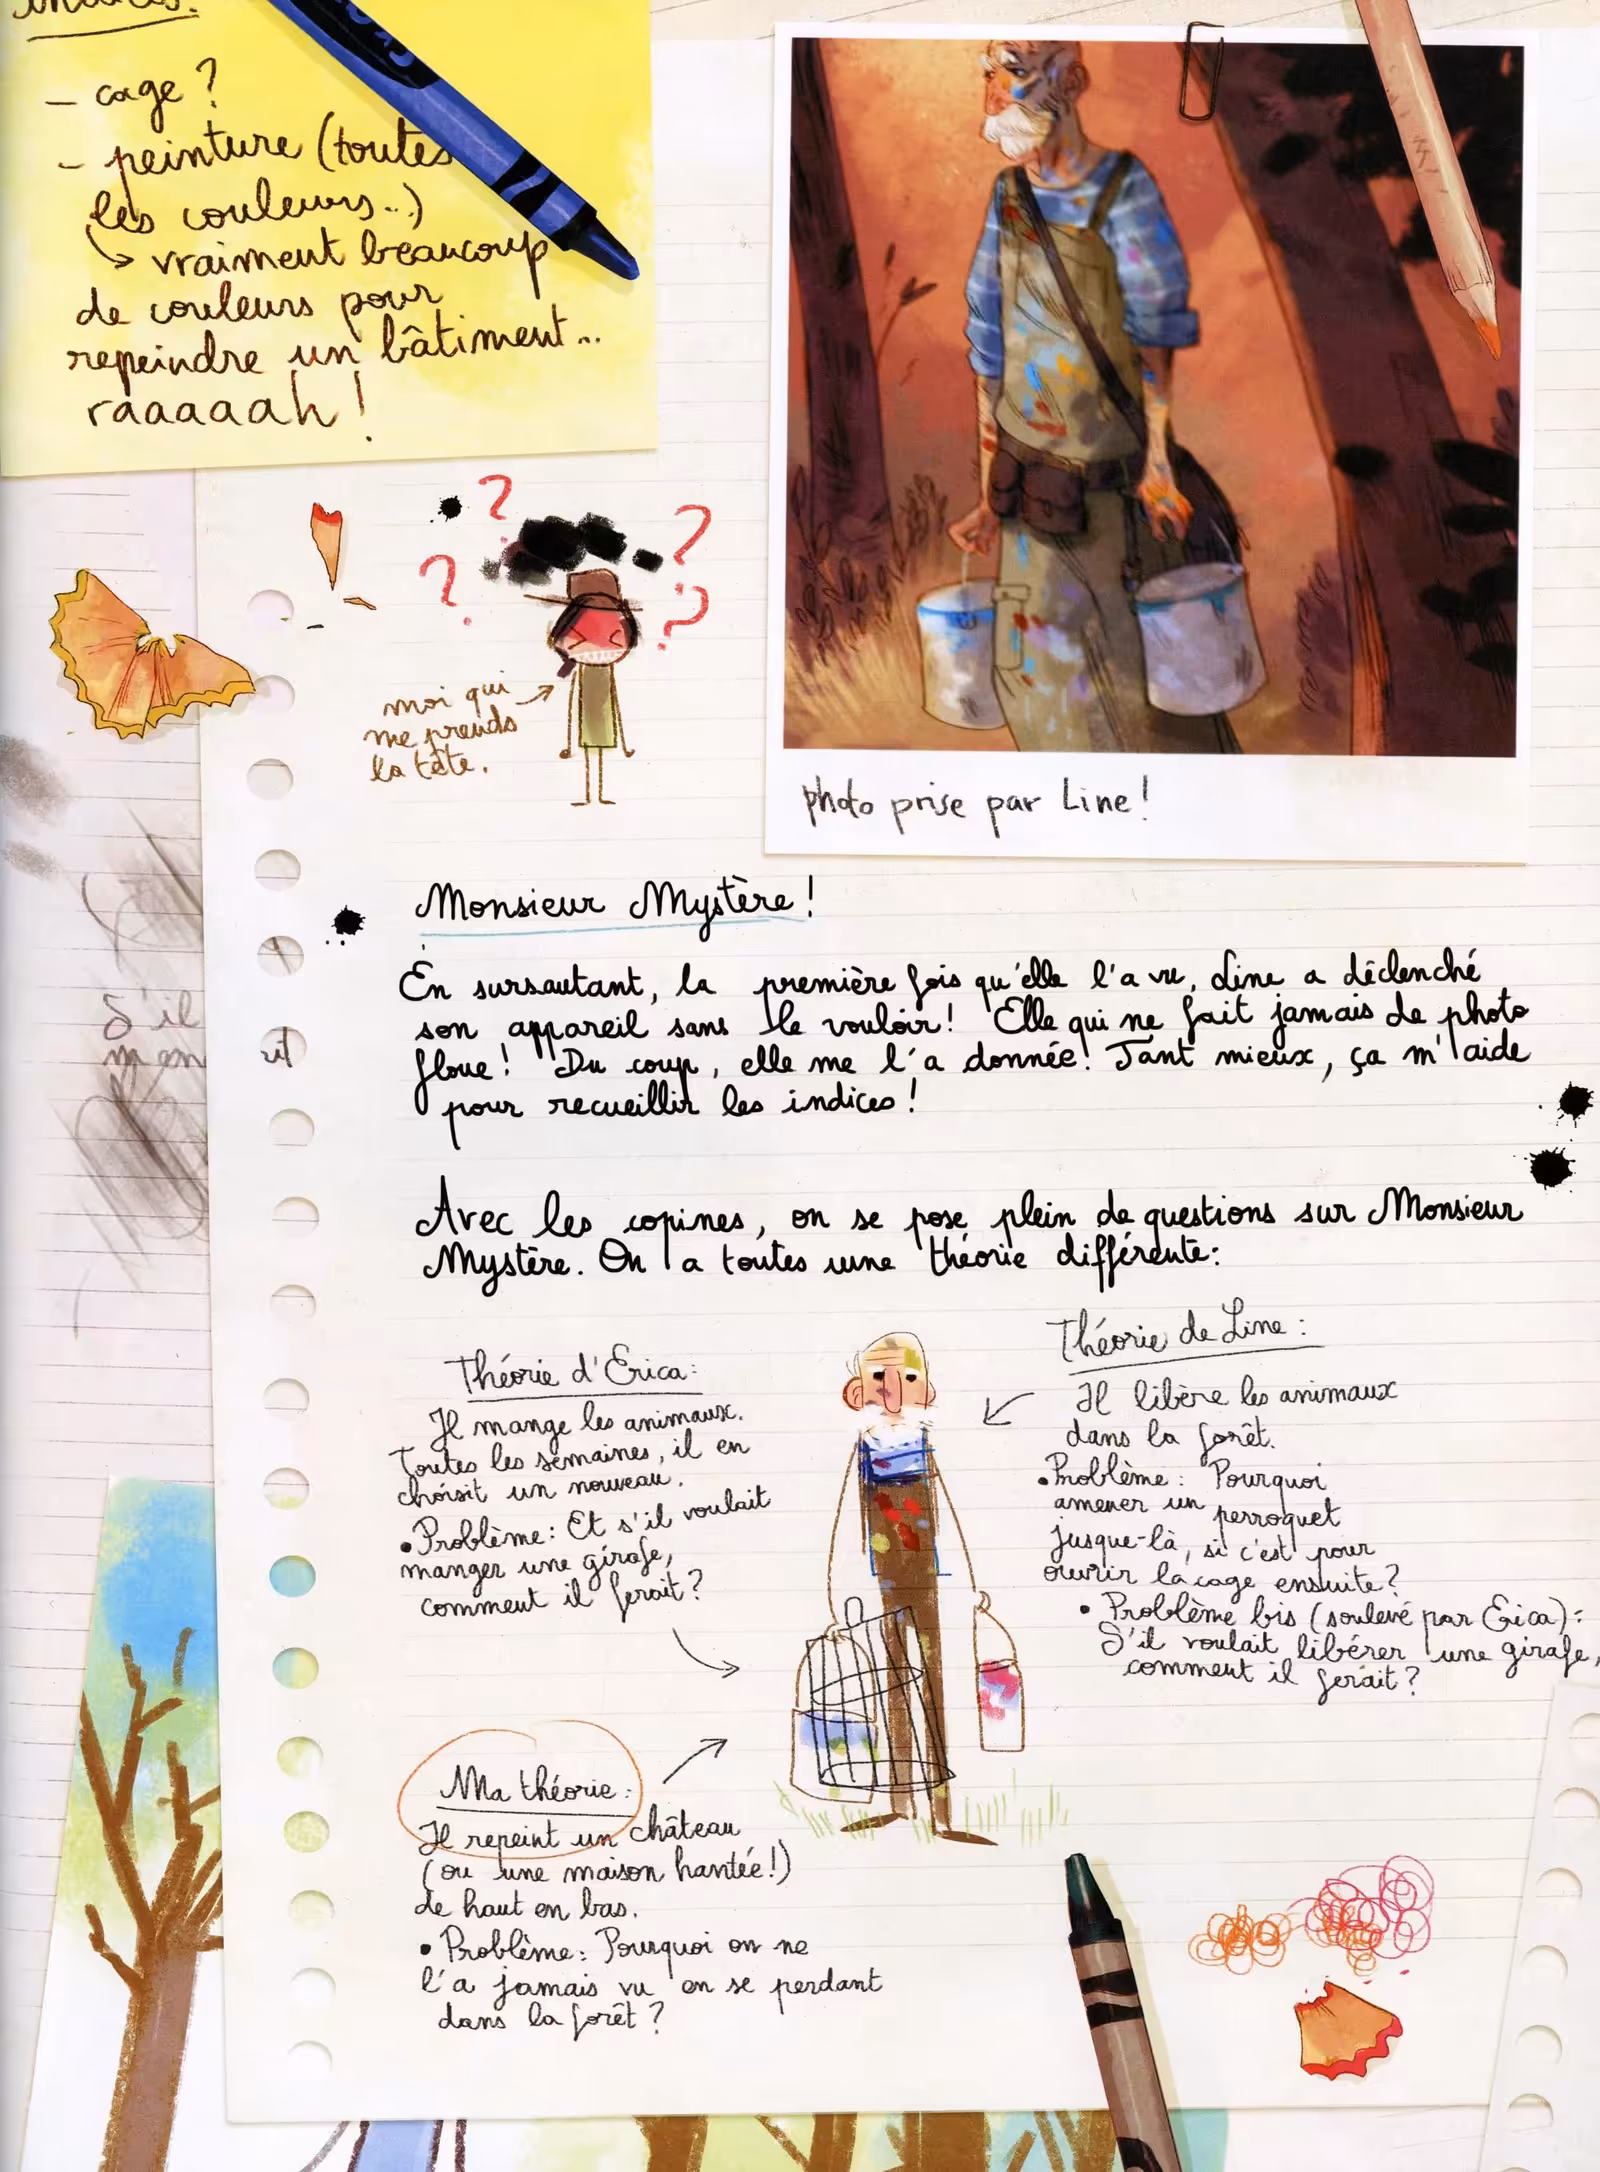 indices:
- cage ?
- peinture (toutes
les couleurs...)
↳ vraiment beaucoup
de couleurs pour
repeindre un bâtiment...
raaaaah !
? ? ? ?
moi qui
me prends
la tête.
photo prise par Line !
Monsieur Mystère !
En sursautant, la première fois qu'elle l'a vu, Line a déclenché
son appareil sans le vouloir ! Elle qui ne fait jamais de photo
floue ! Du coup, elle me l'a donnée ! Tant mieux, ça m'aide
pour recueillir les indices !
S'il
Avec les copines, on se pose plein de questions sur Monsieur
Mystère. On a toutes une théorie différente :
Théorie d'Erica :
Il mange les animaux.
Toutes les semaines, il en
choisit un nouveau.
• Problème : Et s'il voulait
manger une girafe,
comment il ferait ?
Théorie de Line :
Il libère les animaux
dans la forêt.
• Problème : Pourquoi
amener un perroquet
jusque-là, si c'est pour
ouvrir la cage ensuite ?
• Problème bis (soulevé par Erica) :
S'il voulait libérer une girafe,
comment il ferait ?
Ma théorie :
Il repeint un château
(ou une maison hantée !)
de haut en bas.
• Problème : Pourquoi on ne
l'a jamais vu en se perdant
dans la forêt ?